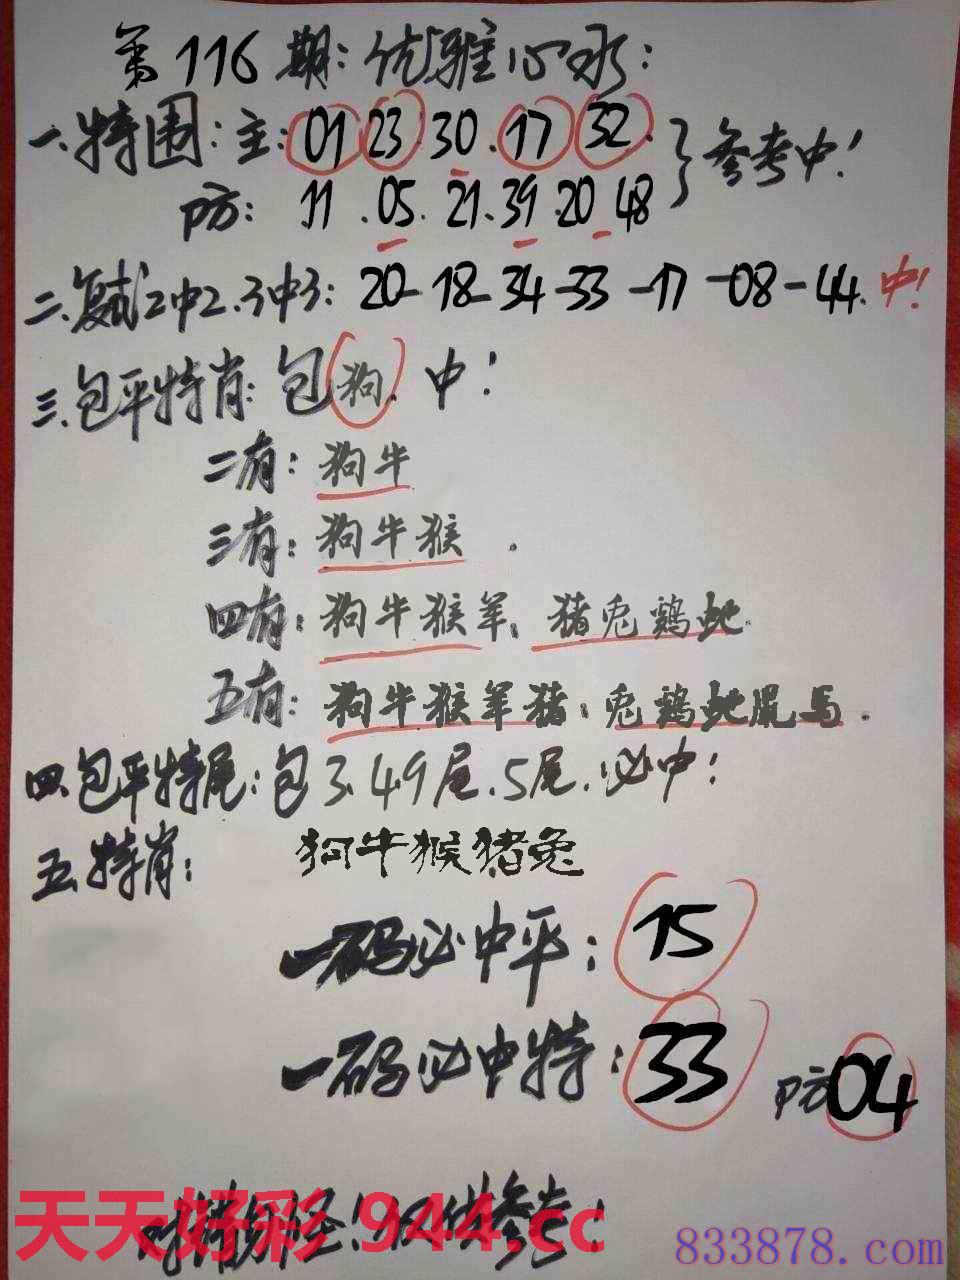 第116期:优雅心水:
一.特围:主:01 23 30.17 32. }参考中!
防: 11.05.21.39.20 48
二.复式2中2.3中3: 20-18-34-33-17-08-44.中!
三.包平特肖:包狗.中!
二有:狗牛
三有:狗牛猴.
四有:狗牛猴羊,猪兔鸡蛇.
五有:狗牛猴羊猪;兔鸡蛇鼠马.
四.包平特尾:包3.4.9尾.5尾.必中!
五.特肖: 狗牛猴猪兔
一码必中平:15
一码必中特:33 防04
天天好彩 944.cc
仅供参考!
833878.com